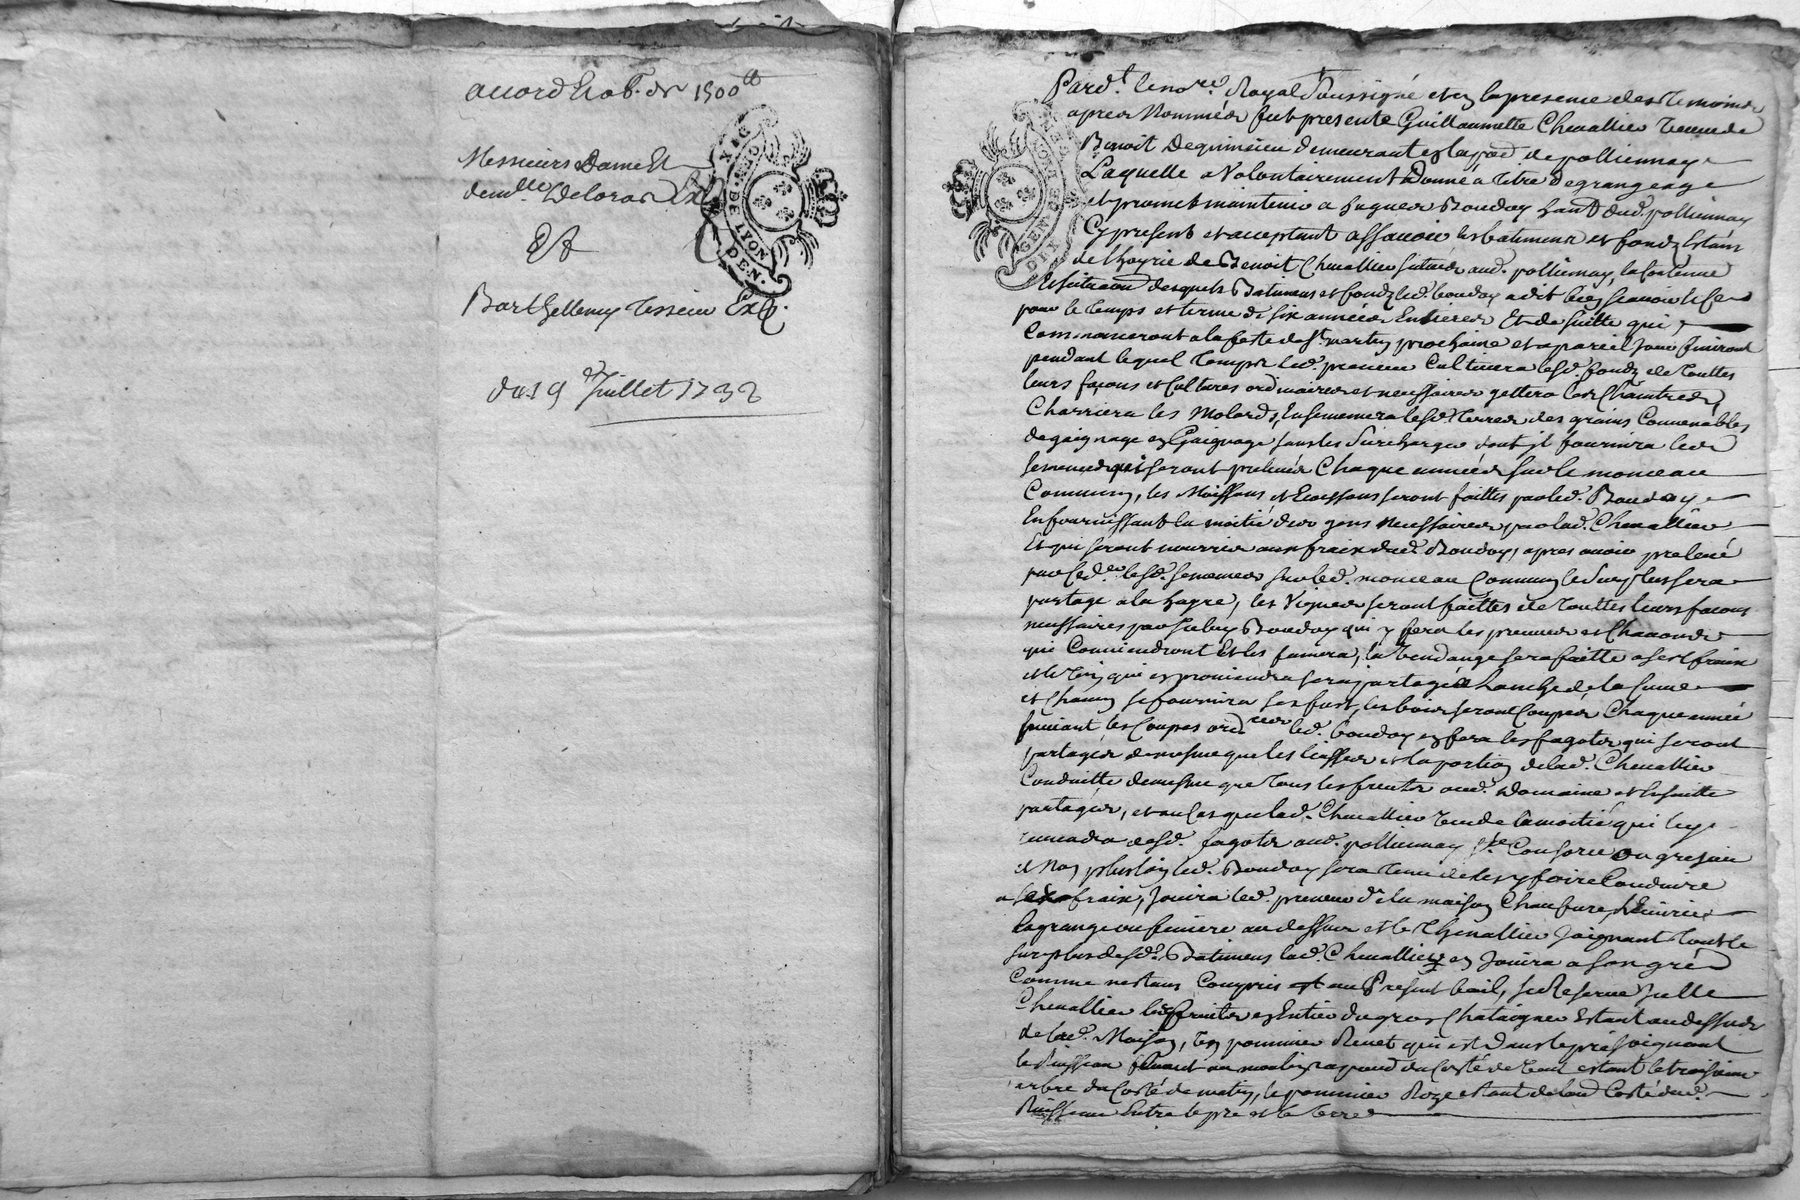 accord et ob. de 1500tt
Messieurs Dame Et
dem.lle Deloras Exp.
Et
Barthellemy Tessieu Exp.
du 19e Juillet 1732
GEN. DE LYON
DIX DEN.
Pard.t le no.re Royal soussigné et en la presence des temoins
apres Nommés fut presente Guillaumette Chevallier veuve de
Benoit Deguimieu demeurant en la par. de pollionnay
Laquelle a Volontairement Donné a titre de grangeage
et promet maintenir a hugues Boudoy hant dud. pollionnay
Cy present et acceptant assavoir les batimens et fondz Estans
de l'hoyrie de Benoit Chevallier situés aud. pollionnay, la Contenue
Et situation desquels Batimens et fondz led. boudoy a dit bien sçavoir
pour le temps et terme de six années Entieres Et de suitte qui
Commanceront a la feste de St. martin prochaine et a pareil jour finiront
pendant lequel temps led. preneur Cultivera lesd. fondz de touttes
leurs façons et Cultures ordinaires et necessaires gettera les Chaintres,
Charriera les Molards, Ensemencera lesd. terres des grains Convenables
de gaignage en Gaignage sans les Surcharger dont il fournira les
semences qui seront prelevés Chaque année sur le monceau
Commun, les Moissons et Ecossons seront faittes par led. Boudoy
En fournissant la moitié des gens necessaires par lad. Chevallier
Et qui seront nourris aux frais dud. Boudoy, apres avoir prelevé
lesd. semences sur led. monceau Commun le surplus sera
partagé a la hayre, les Vignes seront faittes de touttes leurs façons
necessaires par iceluy Boudoy qui y fera les preuves et Chavons
qui Conviendront Et les fumera, la Vendange sera faitte a ses frais
et le vin qui en proviendra sera partagé a l'anche de la Cuve
et Chacun se fournira ses futs, les bois seront Coupés Chaque année
suivant les Coupes ord.res led. boudoy en fera les fagots qui seront
partagés de mesme que les liasses et la portion de lad. Chevallier
Conduitte de mesme que tous les fruits aud. domaine et ensuitte
partagés, et au Cas que lad. Chevallier vende la moitié qui luy
reviendra desd. fagots aud. pollionnay, Ste. Consorce ou gresieu
et Non plus loin led. Boudoy sera tenu de les y faire Conduire
a ses frais, Jouira led. preneur de la maison Chaufure, Ecurie
la grange ou feniere au dessus et le Chevallier Joignant tout le
surplus desd. Batimens lad. Chevallier en Jouira a son gré
Comme n'estans Compris au Present bail, se Reserve jcelle
Chevallier les fruits en Entier du gros Chataignier Estant au dessus
de lad. Maison, d'un pommier Renet qui est dans le pré Joignant
le Ruisseau fluant au moulin estant le troisieme
arbre du Costé de matin, le pommier Roze estant de l'aud Costé dud.
Ruisseau Entre le pré et la terre